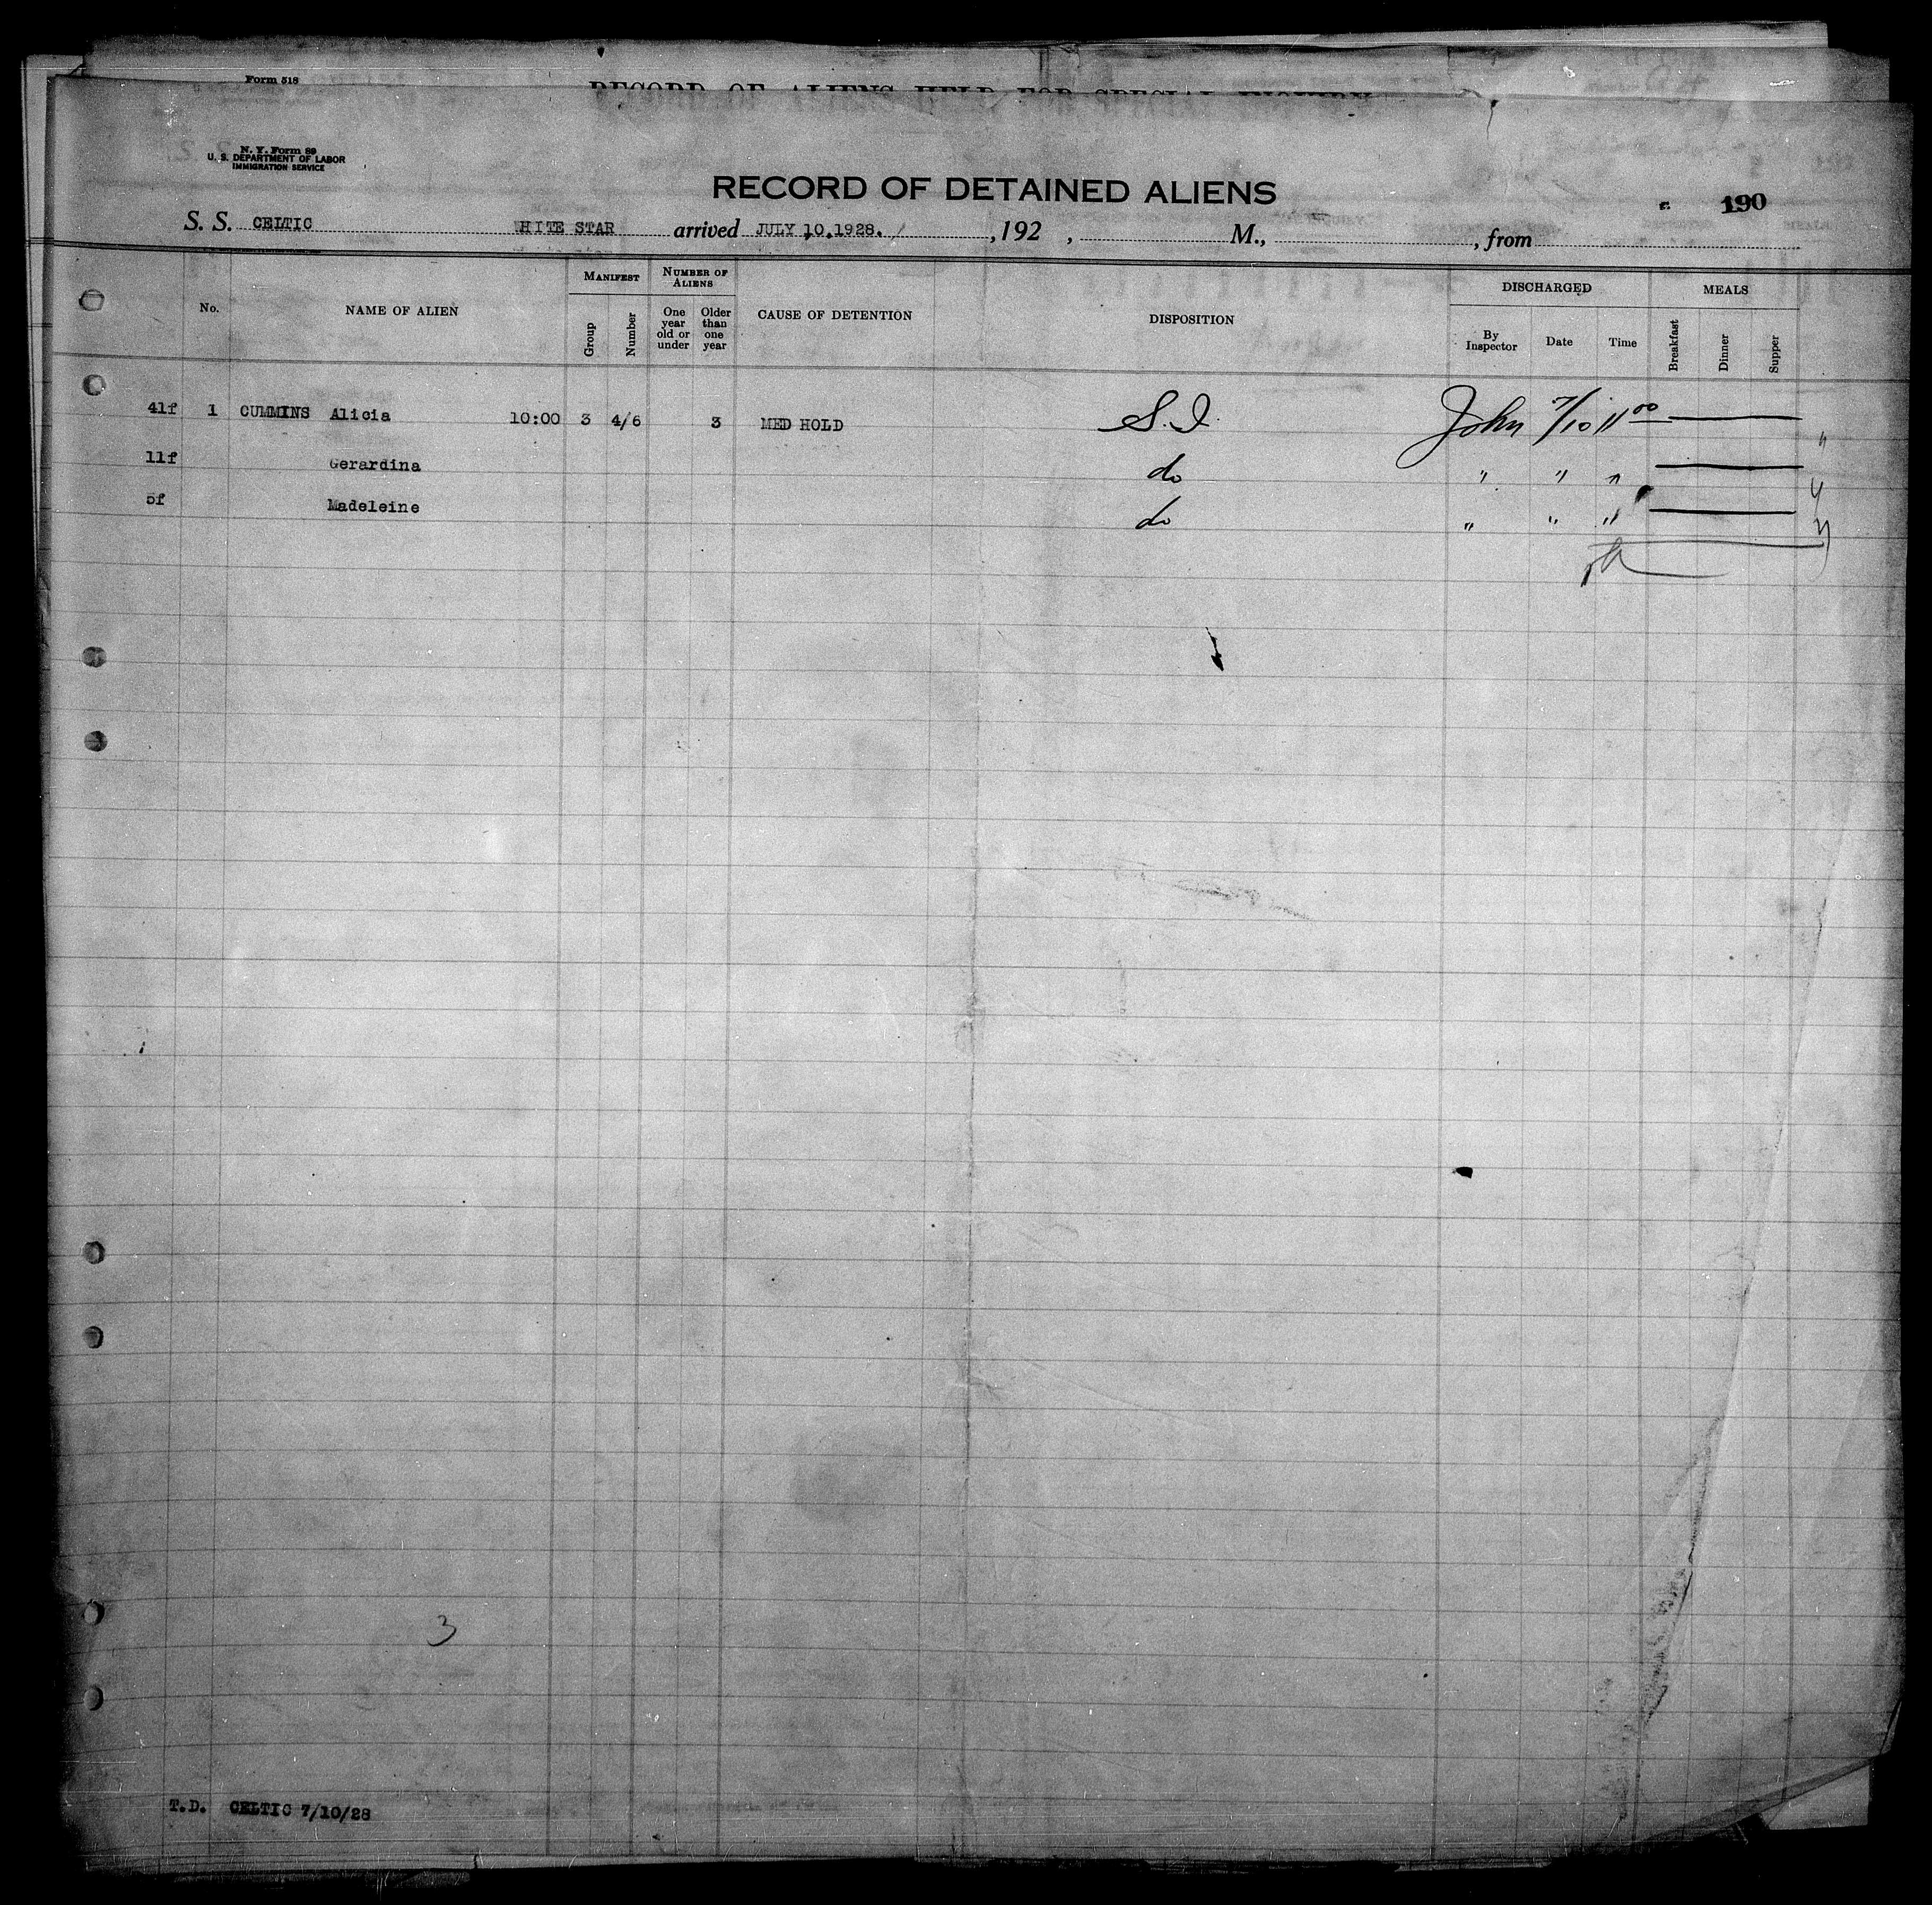 Form 518
RECORD OF ALIENS HELD FOR SPECIAL INQUIRY
N. Y. Form 89
U. S. DEPARTMENT OF LABOR
IMMIGRATION SERVICE
RECORD OF DETAINED ALIENS
190
S. S. CELTIC HITE STAR arrived JULY 10.1928. , 192 , M., , from
No. NAME OF ALIEN MANIFEST Group Number NUMBER OF ALIENS One year old or under Older than one year CAUSE OF DETENTION DISPOSITION DISCHARGED By Inspector Date Time MEALS Breakfast Dinner Supper
41f 1 CUMMINS Alicia 10:00 3 4/6 3 MED HOLD S.I. John 7/10 11 00
11f Gerardina do " " "
5f Madeleine do " " "
3
T.D. CELTIC 7/10/28